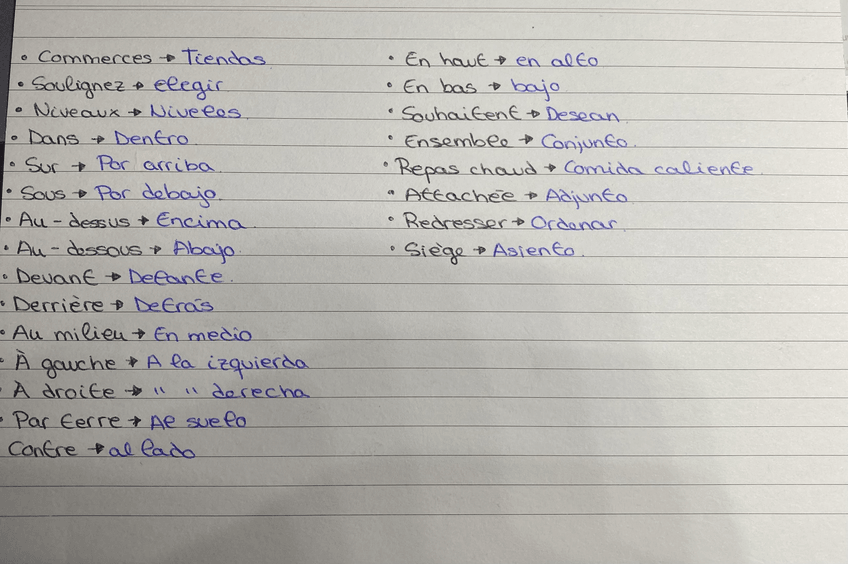 • Commerces → Tiendas
• Soulignez → elegir
• Niveaux → Niveles
• Dans → Dentro
• Sur → Por arriba
• Sous → Por debajo
• Au-dessus → Encima
• Au-dessous → Abajo
• Devant → Delante
• Derrière → Detrás
• Au milieu → En medio
• À gauche → A la izquierda
• À droite → " " derecha
• Par terre → Al suelo
Contre → al lado
• En haut → en alto
• En bas → bajo
• Souhaitent → Desean
• Ensemble → Conjunto
• Repas chaud → Comida caliente
• Attachée → Adjunto
• Redresser → Ordenar
• Siège → Asiento